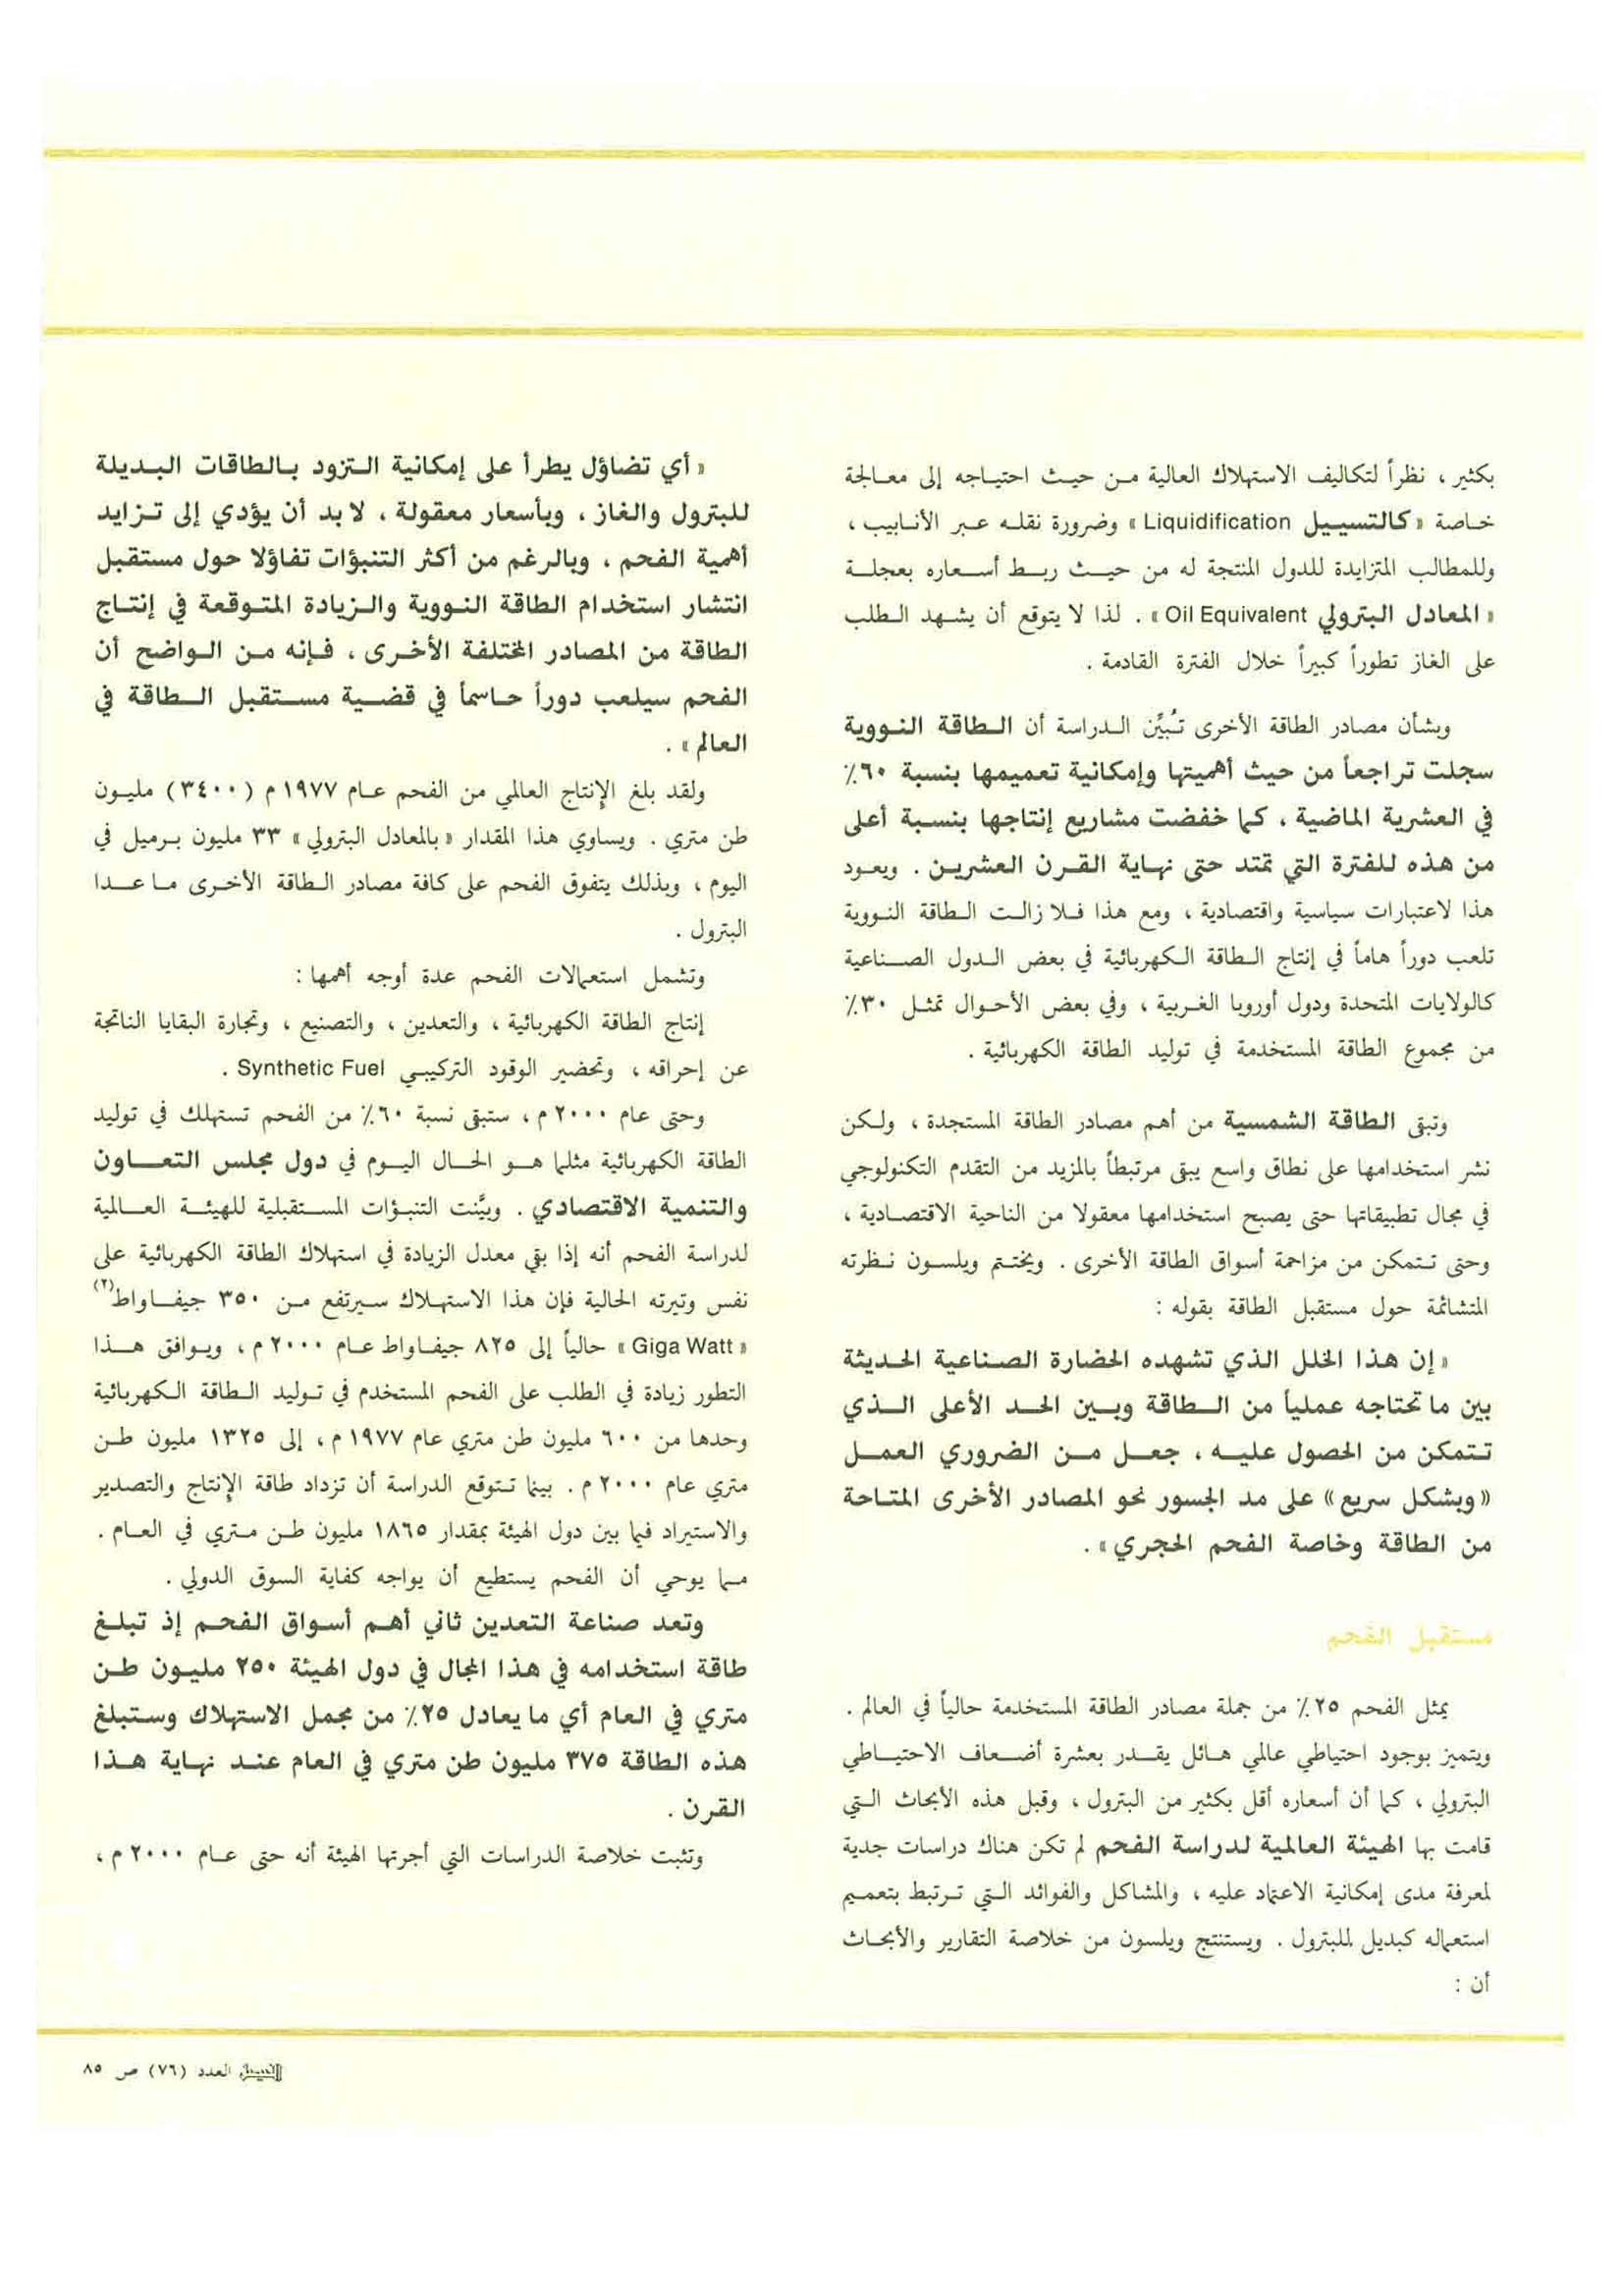 بكثير ، نظراً لتكاليف الاستهلاك العالية من حيث احتياجه إلى معالجة
خاصة « كالتسييل Liquidification » وضرورة نقله عبر الأنابيب ،
وللمطالب المتزايدة للدول المنتجة له من حيث ربط أسعاره بعجلة
« المعادل البترولي Oil Equivalent » . لذا لا يتوقع أن يشهد الطلب
على الغاز تطوراً كبيراً خلال الفترة القادمة .
وبشأن مصادر الطاقة الأخرى تُبيِّن الدراسة أن الطاقة النووية
سجلت تراجعاً من حيث أهميتها وإمكانية تعميمها بنسبة ٦٠٪
في العشرية الماضية ، كما خفضت مشاريع إنتاجها بنسبة أعلى
من هذه للفترة التي تمتد حتى نهاية القرن العشرين . ويعود
هذا لاعتبارات سياسية واقتصادية ، ومع هذا فلا زالت الطاقة النووية
تلعب دوراً هاماً في إنتاج الطاقة الكهربائية في بعض الدول الصناعية
كالولايات المتحدة ودول أوروبا الغربية ، وفي بعض الأحوال تمثل ٣٠٪
من مجموع الطاقة المستخدمة في توليد الطاقة الكهربائية .
وتبقى الطاقة الشمسية من أهم مصادر الطاقة المستجدة ، ولكن
نشر استخدامها على نطاق واسع يبقى مرتبطاً بالمزيد من التقدم التكنولوجي
في مجال تطبيقاتها حتى يصبح استخدامها معقولا من الناحية الاقتصادية ،
وحتى تتمكن من مزاحمة أسواق الطاقة الأخرى . ويختتم ويلسون نظرته
المتشائمة حول مستقبل الطاقة بقوله :
« إن هذا الخلل الذي تشهده الحضارة الصناعية الحديثة
بين ما تحتاجه عملياً من الطاقة وبين الحد الأعلى الذي
تتمكن من الحصول عليه ، جعل من الضروري العمل
« وبشكل سريع » على مد الجسور نحو المصادر الأخرى المتاحة
من الطاقة وخاصة الفحم الحجري » .
مستقبل الفحم
يمثل الفحم ٢٥٪ من جملة مصادر الطاقة المستخدمة حالياً في العالم .
ويتميز بوجود احتياطي عالمي هائل يقدر بعشرة أضعاف الاحتياطي
البترولي ، كما أن أسعاره أقل بكثير من البترول ، وقبل هذه الأبحاث التي
قامت بها الهيئة العالمية لدراسة الفحم لم تكن هناك دراسات جدية
لمعرفة مدى إمكانية الاعتماد عليه ، والمشاكل والفوائد التي ترتبط بتعميم
استعماله كبديل للبترول . ويستنتج ويلسون من خلاصة التقارير والأبحاث
أن :
« أي تضاؤل يطرأ على إمكانية التزود بالطاقات البديلة
للبترول والغاز ، وبأسعار معقولة ، لا بد أن يؤدي إلى تزايد
أهمية الفحم ، وبالرغم من أكثر التنبؤات تفاؤلا حول مستقبل
انتشار استخدام الطاقة النووية والزيادة المتوقعة في إنتاج
الطاقة من المصادر المختلفة الأخرى ، فإنه من الواضح أن
الفحم سيلعب دوراً حاسماً في قضية مستقبل الطاقة في
العالم » .
ولقد بلغ الإنتاج العالمي من الفحم عام ١٩٧٧ م ( ٣٤٠٠ ) مليون
طن متري . ويساوي هذا المقدار « بالمعادل البترولي » ٣٣ مليون برميل في
اليوم ، وبذلك يتفوق الفحم على كافة مصادر الطاقة الأخرى ما عدا
البترول .
وتشمل استعمالات الفحم عدة أوجه أهمها :
إنتاج الطاقة الكهربائية ، والتعدين ، والتصنيع ، وتجارة البقايا الناتجة
عن إحراقه ، وتحضير الوقود التركيبي Synthetic Fuel .
وحتى عام ٢٠٠٠ م ، ستبقى نسبة ٦٠٪ من الفحم تستهلك في توليد
الطاقة الكهربائية مثلما هو الحال اليوم في دول مجلس التعاون
والتنمية الاقتصادي . وبيَّنت التنبؤات المستقبلية للهيئة العالمية
لدراسة الفحم أنه إذا بقي معدل الزيادة في استهلاك الطاقة الكهربائية على
نفس وتيرته الحالية فإن هذا الاستهلاك سيرتفع من ٣٥٠ جيغاواط(٢)
« Giga Watt » حالياً إلى ٨٢٥ جيغاواط عام ٢٠٠٠ م ، ويوافق هذا
التطور زيادة في الطلب على الفحم المستخدم في توليد الطاقة الكهربائية
وحدها من ٦٠٠ مليون طن متري عام ١٩٧٧ م ، إلى ١٣٢٥ مليون طن
متري عام ٢٠٠٠ م . بينما تتوقع الدراسة أن تزداد طاقة الإنتاج والتصدير
والاستيراد فيما بين دول الهيئة بمقدار ١٨٦٥ مليون طن متري في العام .
مما يوحي أن الفحم يستطيع أن يواجه كفاية السوق الدولي .
وتعد صناعة التعدين ثاني أهم أسواق الفحم إذ تبلغ
طاقة استخدامه في هذا المجال في دول الهيئة ٢٥٠ مليون طن
متري في العام أي ما يعادل ٢٥٪ من مجمل الاستهلاك وستبلغ
هذه الطاقة ٣٧٥ مليون طن متري في العام عند نهاية هذا
القرن .
وتثبت خلاصة الدراسات التي أجرتها الهيئة أنه حتى عام ٢٠٠٠ م ،
الفيصل العدد (٧٦) ص ٨٥